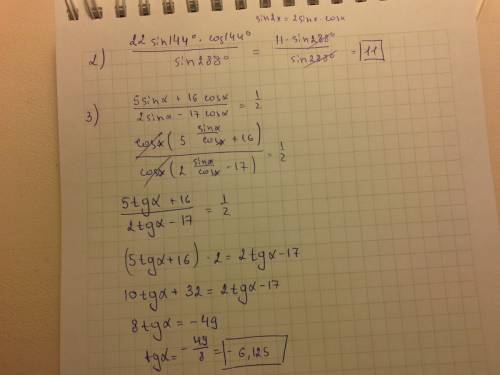 sin2x = 2sinx · cosx
2) 22 sin144° · cos144° / sin288° = 11 · sin288° / sin288° = 11
3) 5sinα + 16 cosα / 2sinα - 17 cosα = 1/2
cosα(5 sinα/cosα + 16) / cosα(2 sinα/cosα - 17) = 1/2
5tgα + 16 / 2tgα - 17 = 1/2
(5tgα + 16) · 2 = 2tgα - 17
10tgα + 32 = 2tgα - 17
8tgα = -49
tgα = - 49/8 = - 6,125